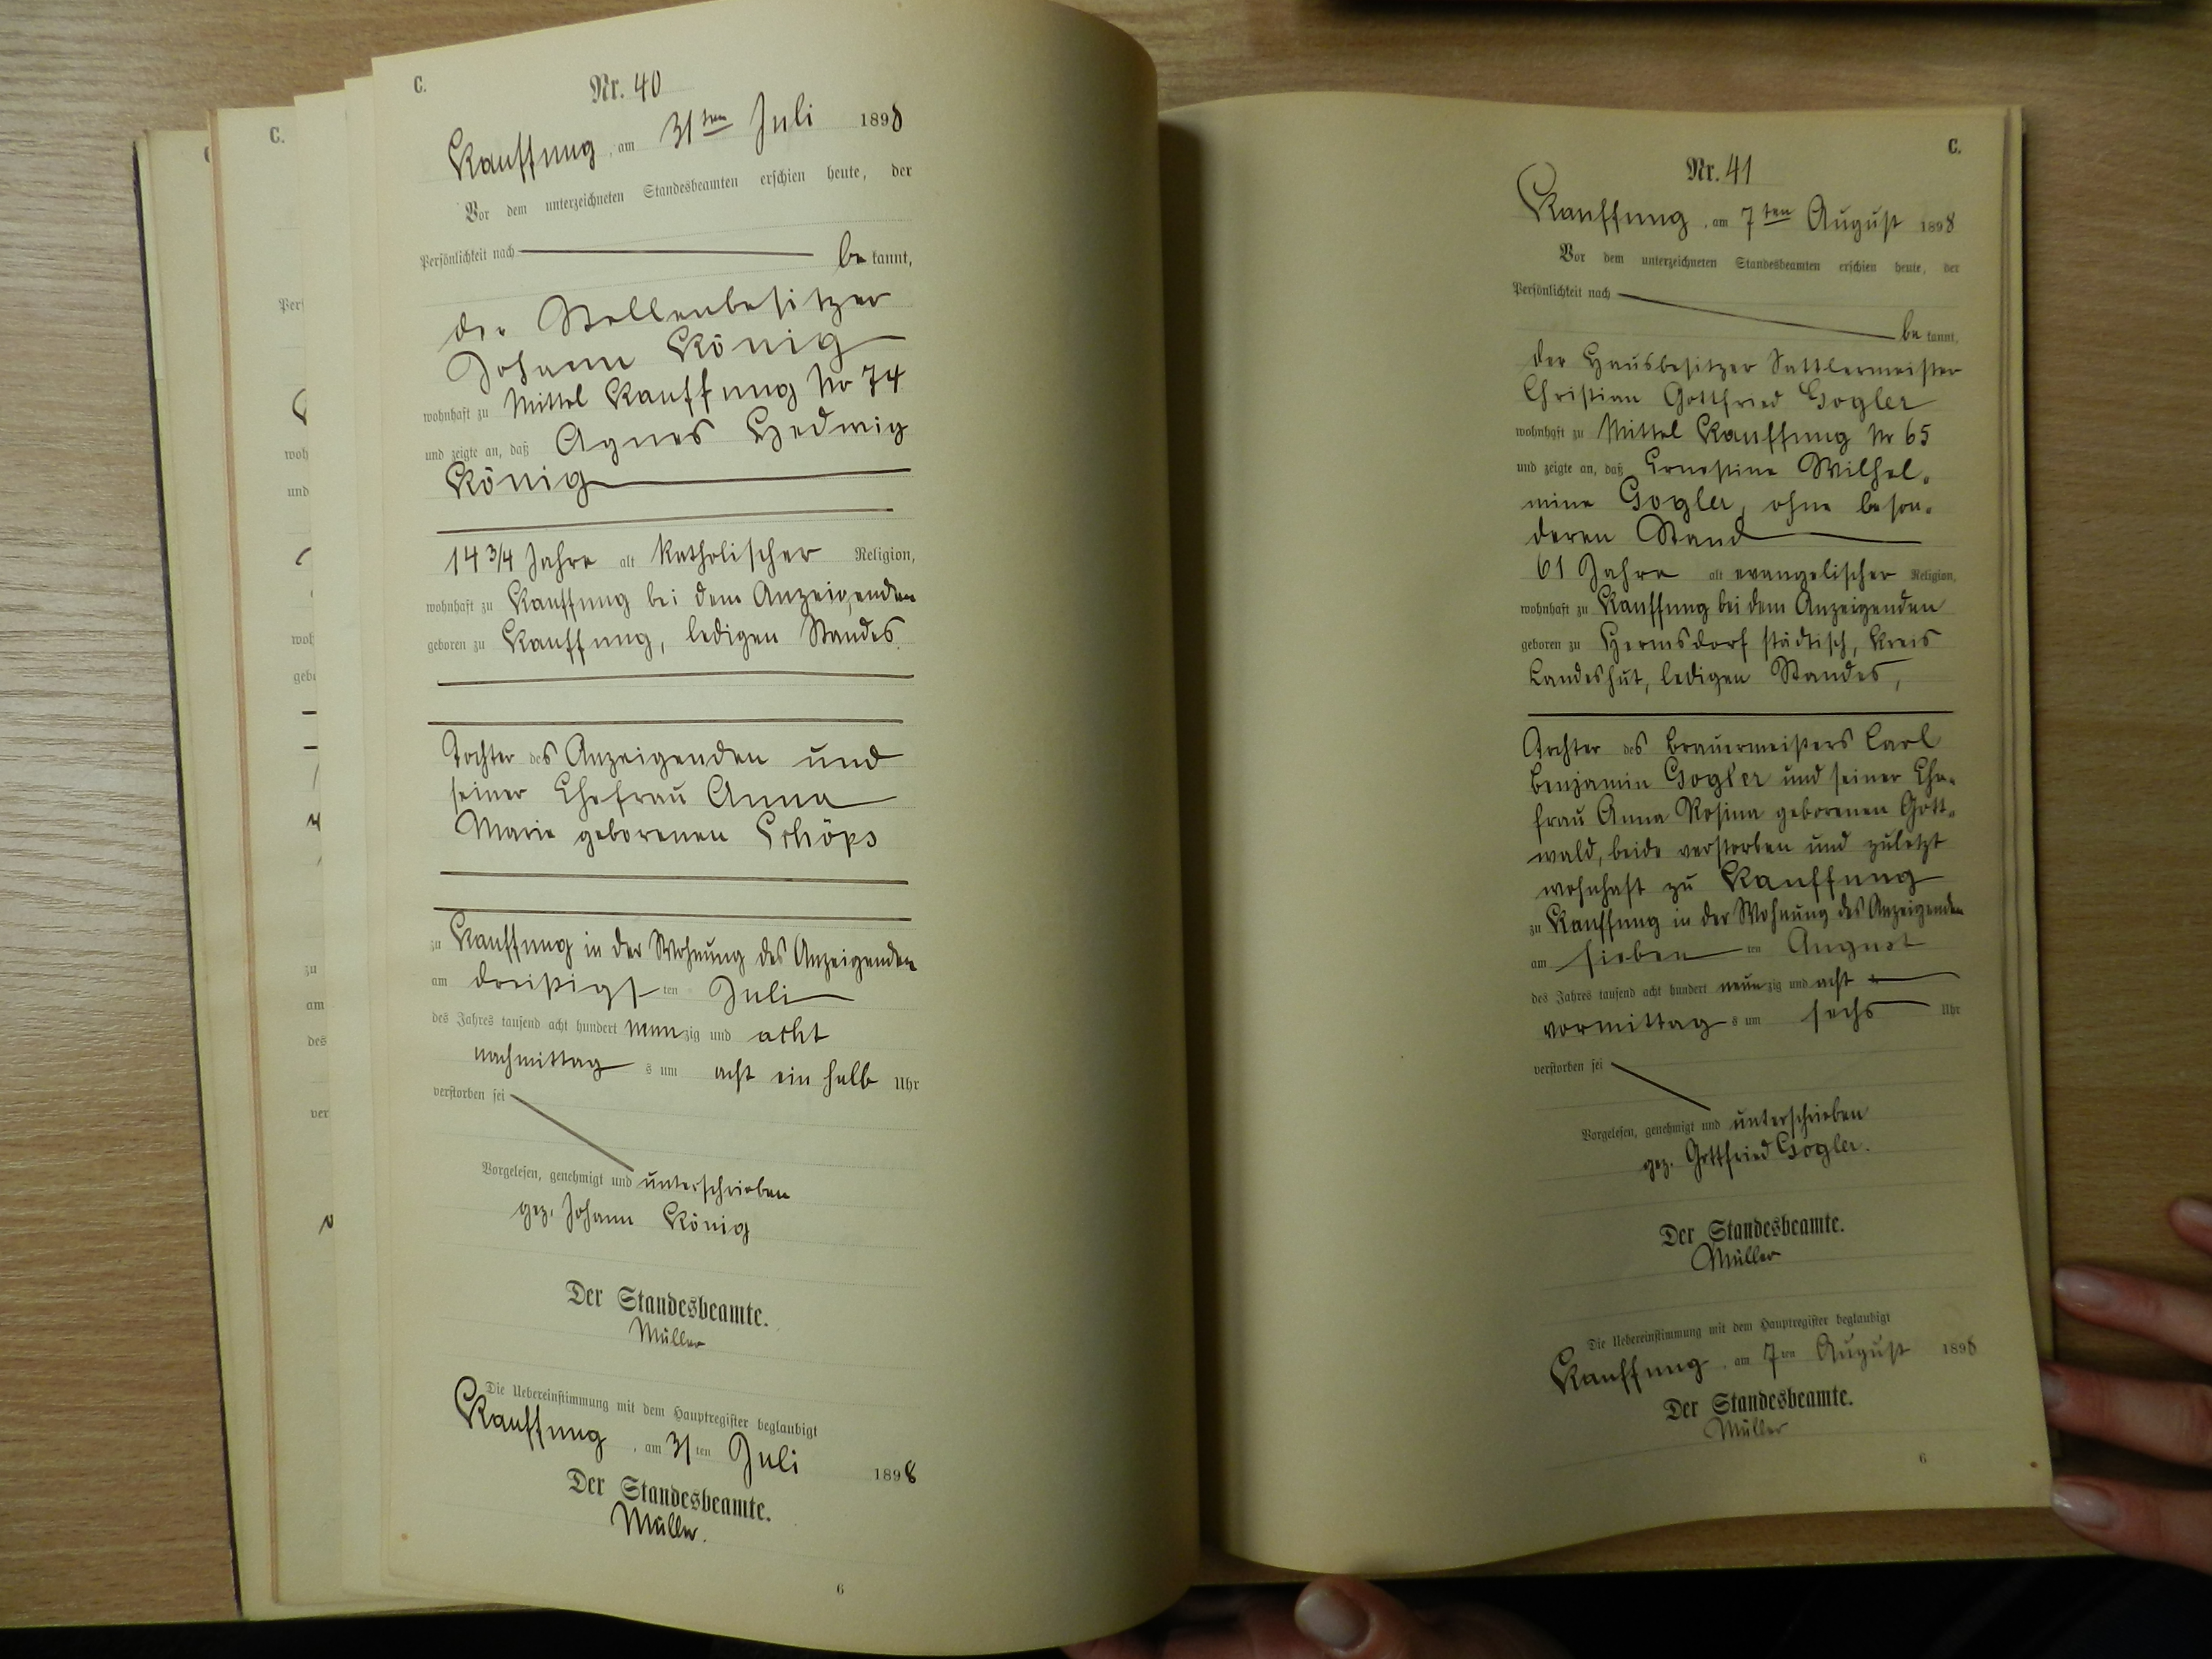 C.
Nr. 40
Kauffung, am 31ten Juli 1898
Vor dem unterzeichneten Standesbeamten erschien heute, der
Persönlichkeit nach
be kannt,
der Stellenbesitzer
Johann König
wohnhaft zu Mittel Kauffung No 74
und zeigte an, daß Agnes Hedwig
König
14 3/4 Jahre alt katholischer Religion,
wohnhaft zu Kauffung bei dem Anzeigenden
geboren zu Kauffung, ledigen Standes.
Tochter des Anzeigenden und
seiner Ehefrau Anna
Marie geborenen Schöps
zu Kauffung in der Wohnung des Anzeigenden
am dreißigsten Juli
des Jahres tausend acht hundert neunzig und acht
nachmittags um acht ein halb Uhr
verstorben sei
Vorgelesen, genehmigt und unterschrieben
gez. Johann König
Der Standesbeamte.
Müller
Die Uebereinstimmung mit dem Hauptregister beglaubigt
Kauffung, am 31ten Juli 1898
Der Standesbeamte.
Müller.
6
C.
Nr. 41
Kauffung, am 7ten August 1898
Vor dem unterzeichneten Standesbeamten erschien heute, der
Persönlichkeit nach
be kannt,
der Hausbesitzer Sattlermeister
Christian Gottfried Gogler
wohnhaft zu Mittel Kauffung No 65
und zeigte an, daß Ernestine Wilhel-
mine Gogler, ohne beson-
deren Stand
61 Jahre alt evangelischer Religion,
wohnhaft zu Kauffung bei dem Anzeigenden
geboren zu Hermsdorf städtisch, Kreis
Landeshut, ledigen Standes,
Tochter des Brauermeisters Carl
Benjamin Gogler und seiner Ehe-
frau Anna Rosina geborenen Gott-
wald, beide verstorben und zuletzt
wohnhaft zu Kauffung
zu Kauffung in der Wohnung des Anzeigenden
am siebenten August
des Jahres tausend acht hundert neunzig und acht
vormittags um sechs Uhr
verstorben sei
Vorgelesen, genehmigt und unterschrieben
gez. Gottfried Gogler.
Der Standesbeamte.
Müller
Die Uebereinstimmung mit dem Hauptregister beglaubigt
Kauffung, am 7ten August 1898
Der Standesbeamte.
Müller
6